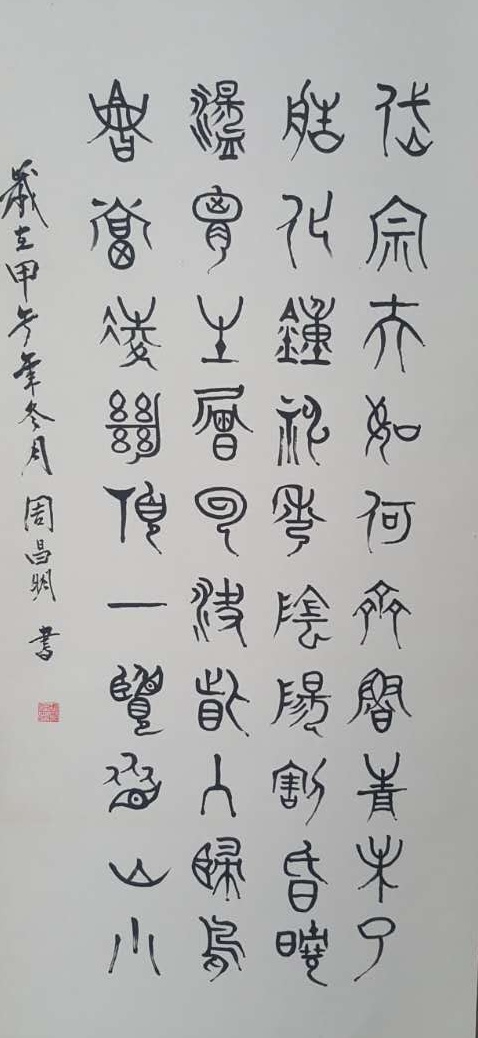 岱宗夫如何齊魯青未了
造化鍾神秀陰陽割昏曉
盪胷生層雲決眥入歸鳥
會當凌絕頂一覽眾山小
歲在甲午年冬月 周昌明 書